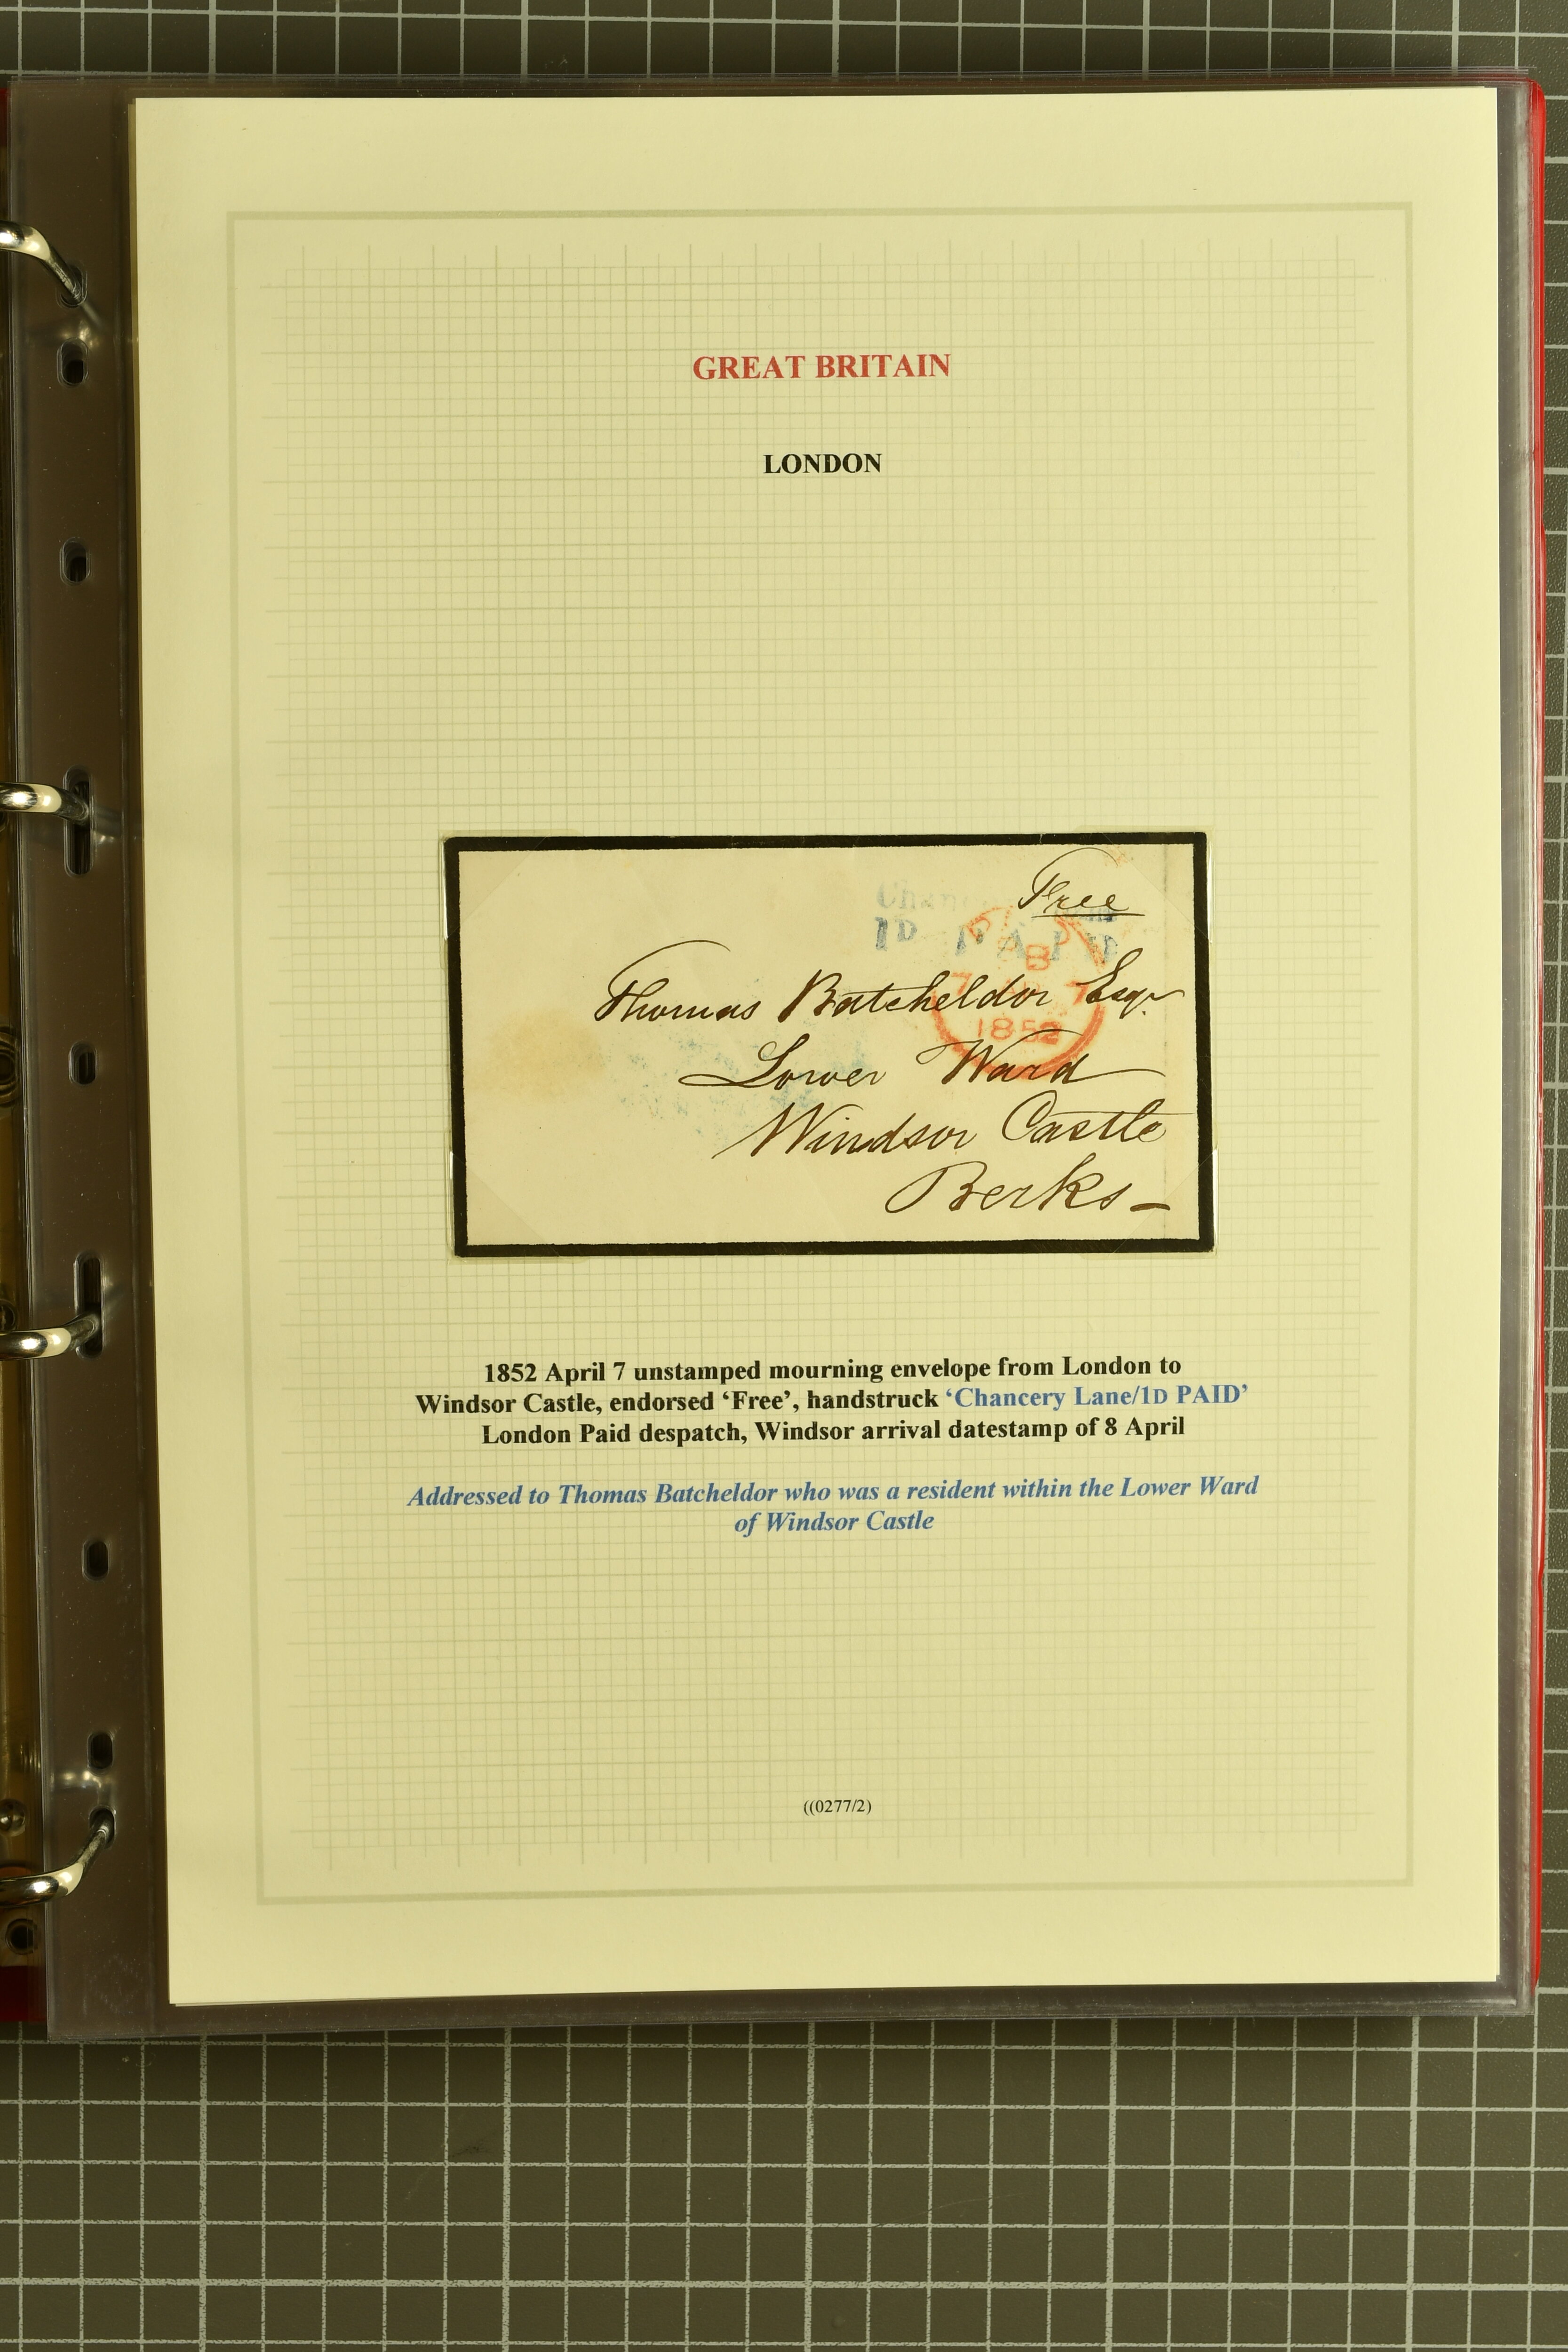 GREAT BRITAIN
LONDON
Free
Chan
1D PAID
PAID
8
7 AP 7
1852
Thomas Batcheldor Esqr
Lower Ward
Windsor Castle
Berks
1852 April 7 unstamped mourning envelope from London to
Windsor Castle, endorsed ‘Free’, handstruck ‘Chancery Lane/1D PAID’
London Paid despatch, Windsor arrival datestamp of 8 April
Addressed to Thomas Batcheldor who was a resident within the Lower Ward
of Windsor Castle
((0277/2)